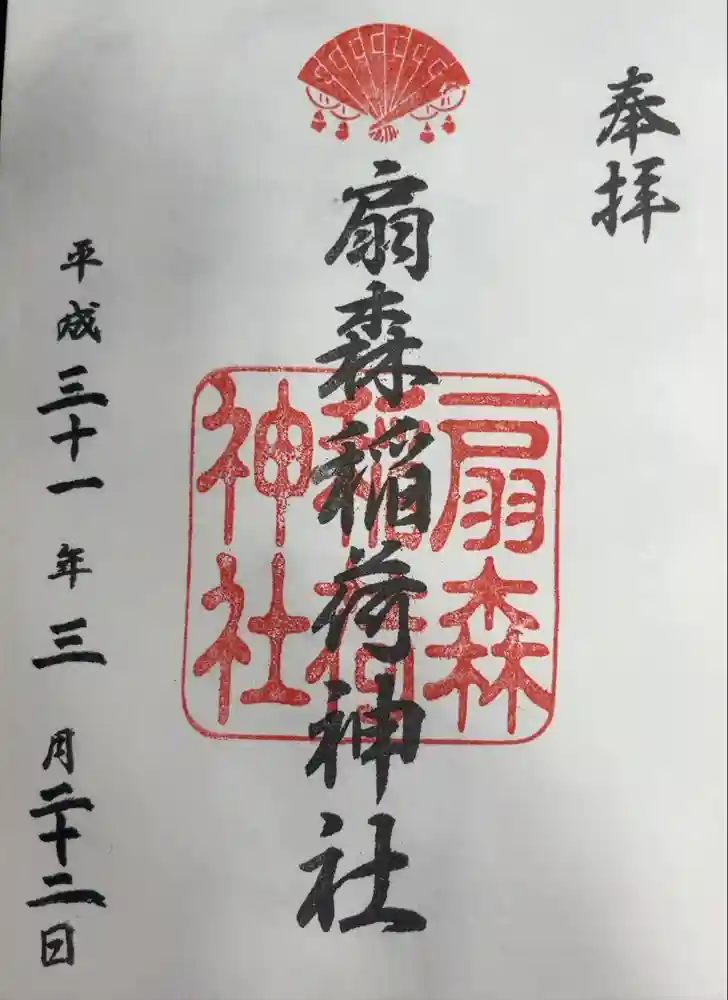 奉拝
扇森稲荷神社
扇森
稲荷
神社
平成三十一年三月二十二日